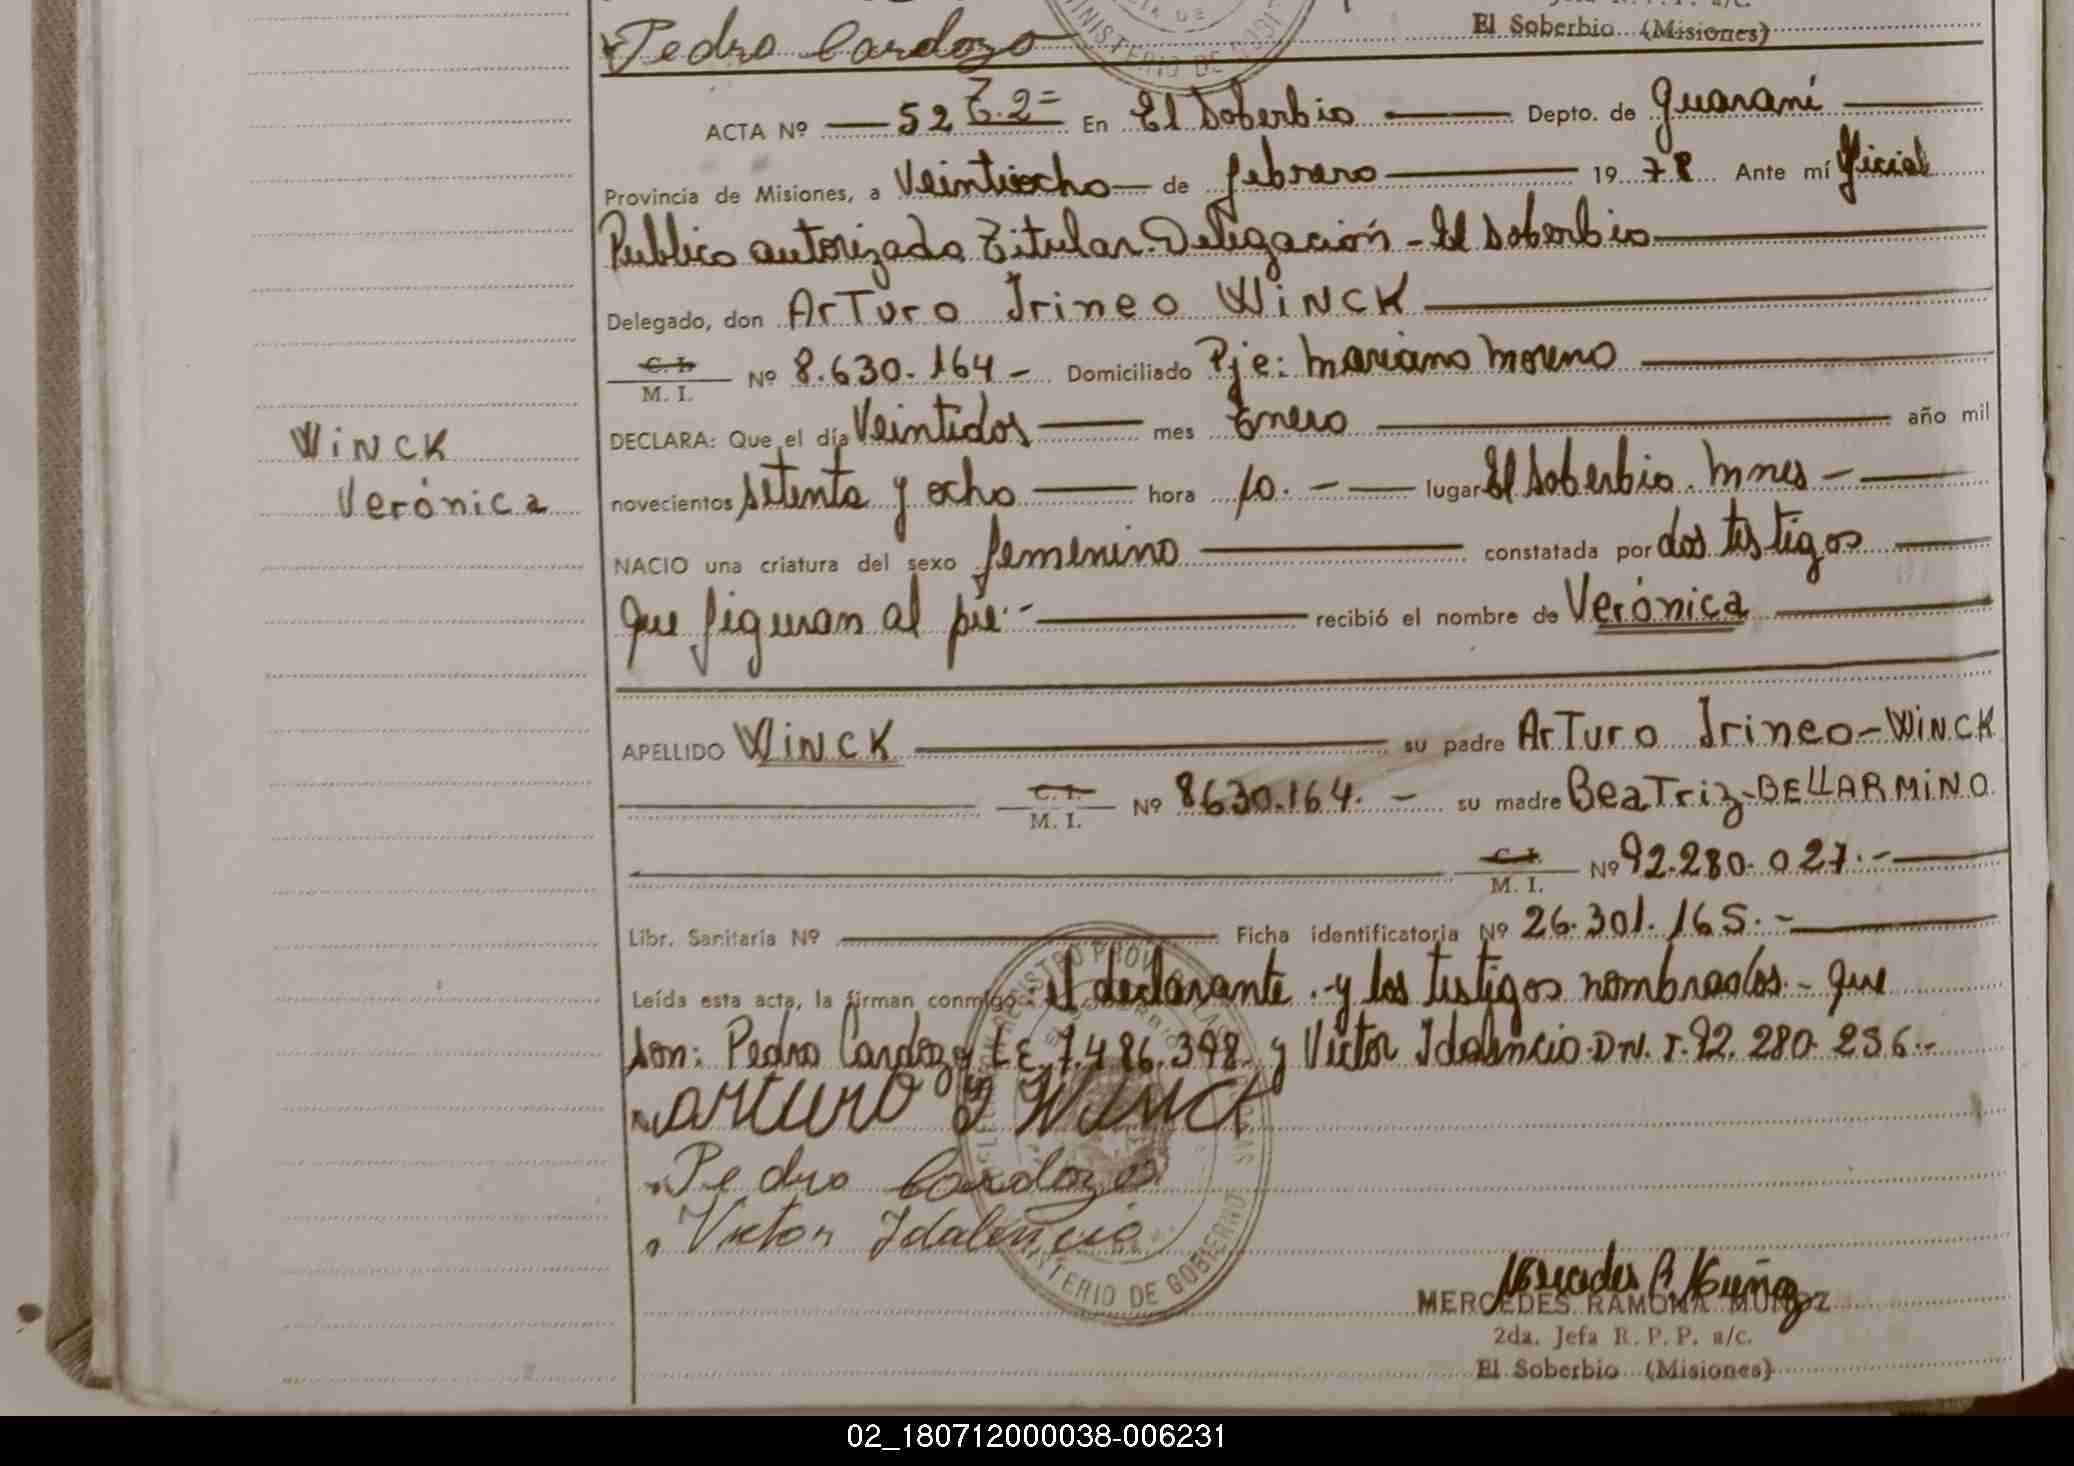 Jefa R. P. P. a/c.
El Soberbio (Misiones)
Pedro Cardozo
MINISTERIO DE
ACTA Nº — 52 T.2= En El Soberbio — Depto. de Guaraní —
Provincia de Misiones, a Veintiocho — de febrero — 1978 Ante mí Oficial
Publico autorizado Titular Delegación - El Soberbio —
Delegado, don ArTuro Irineo WINCK —
C. I.
M. I. Nº 8.630.164 - Domiciliado Pje: Mariano Moreno —
DECLARA: Que el día Veintidos — mes Enero — año mil
WINCK
novecientos setenta y ocho — hora 10. - — lugar El Soberbio. Mnes - —
Verónica
NACIO una criatura del sexo femenino — constatada por dos testigos —
que figuran al pie.- — recibió el nombre de Verónica —
APELLIDO WINCK — su padre ArTuro Irineo - WINCK
C. I.
M. I. Nº 8.630.164. - su madre BeaTriz - BELLARMINO
C. I.
M. I. Nº 92.280.027.- —
Libr. Sanitaria Nº — Ficha identificatoria Nº 26.301.165.- —
Leída esta acta, la firman conmigo: el declarante.-y los testigos nombrados.- que
son: Pedro Cardozo L.E. 7.486.398.- y Victor Idalencio-D.N.I. 92.280.236.-
arturo I Winck
Pedro Cardozo
Victor Idalencio
MINISTERIO DE GOBIERNO
Mercedes R. Muñoz
MERCEDES RAMONA MUÑOZ
2da. Jefa R. P. P. a/c.
El Soberbio (Misiones)
02_180712000038-006231